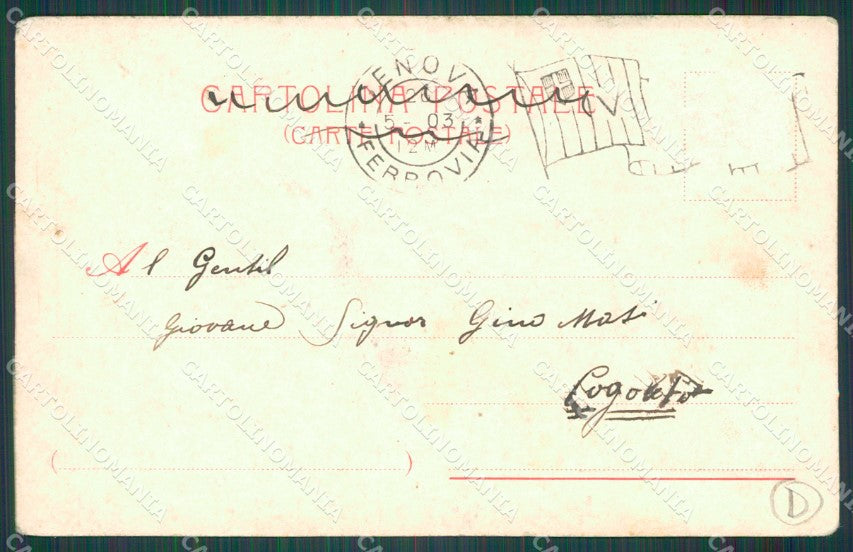 CARTOLINA POSTALE
(CARTE POSTALE)
ENOV
5 - 03
12M
* FERROVIE *
Al Gentil
Giovane Signor Gino Masi
Cogoleto
D
CARTOLINOMANIA